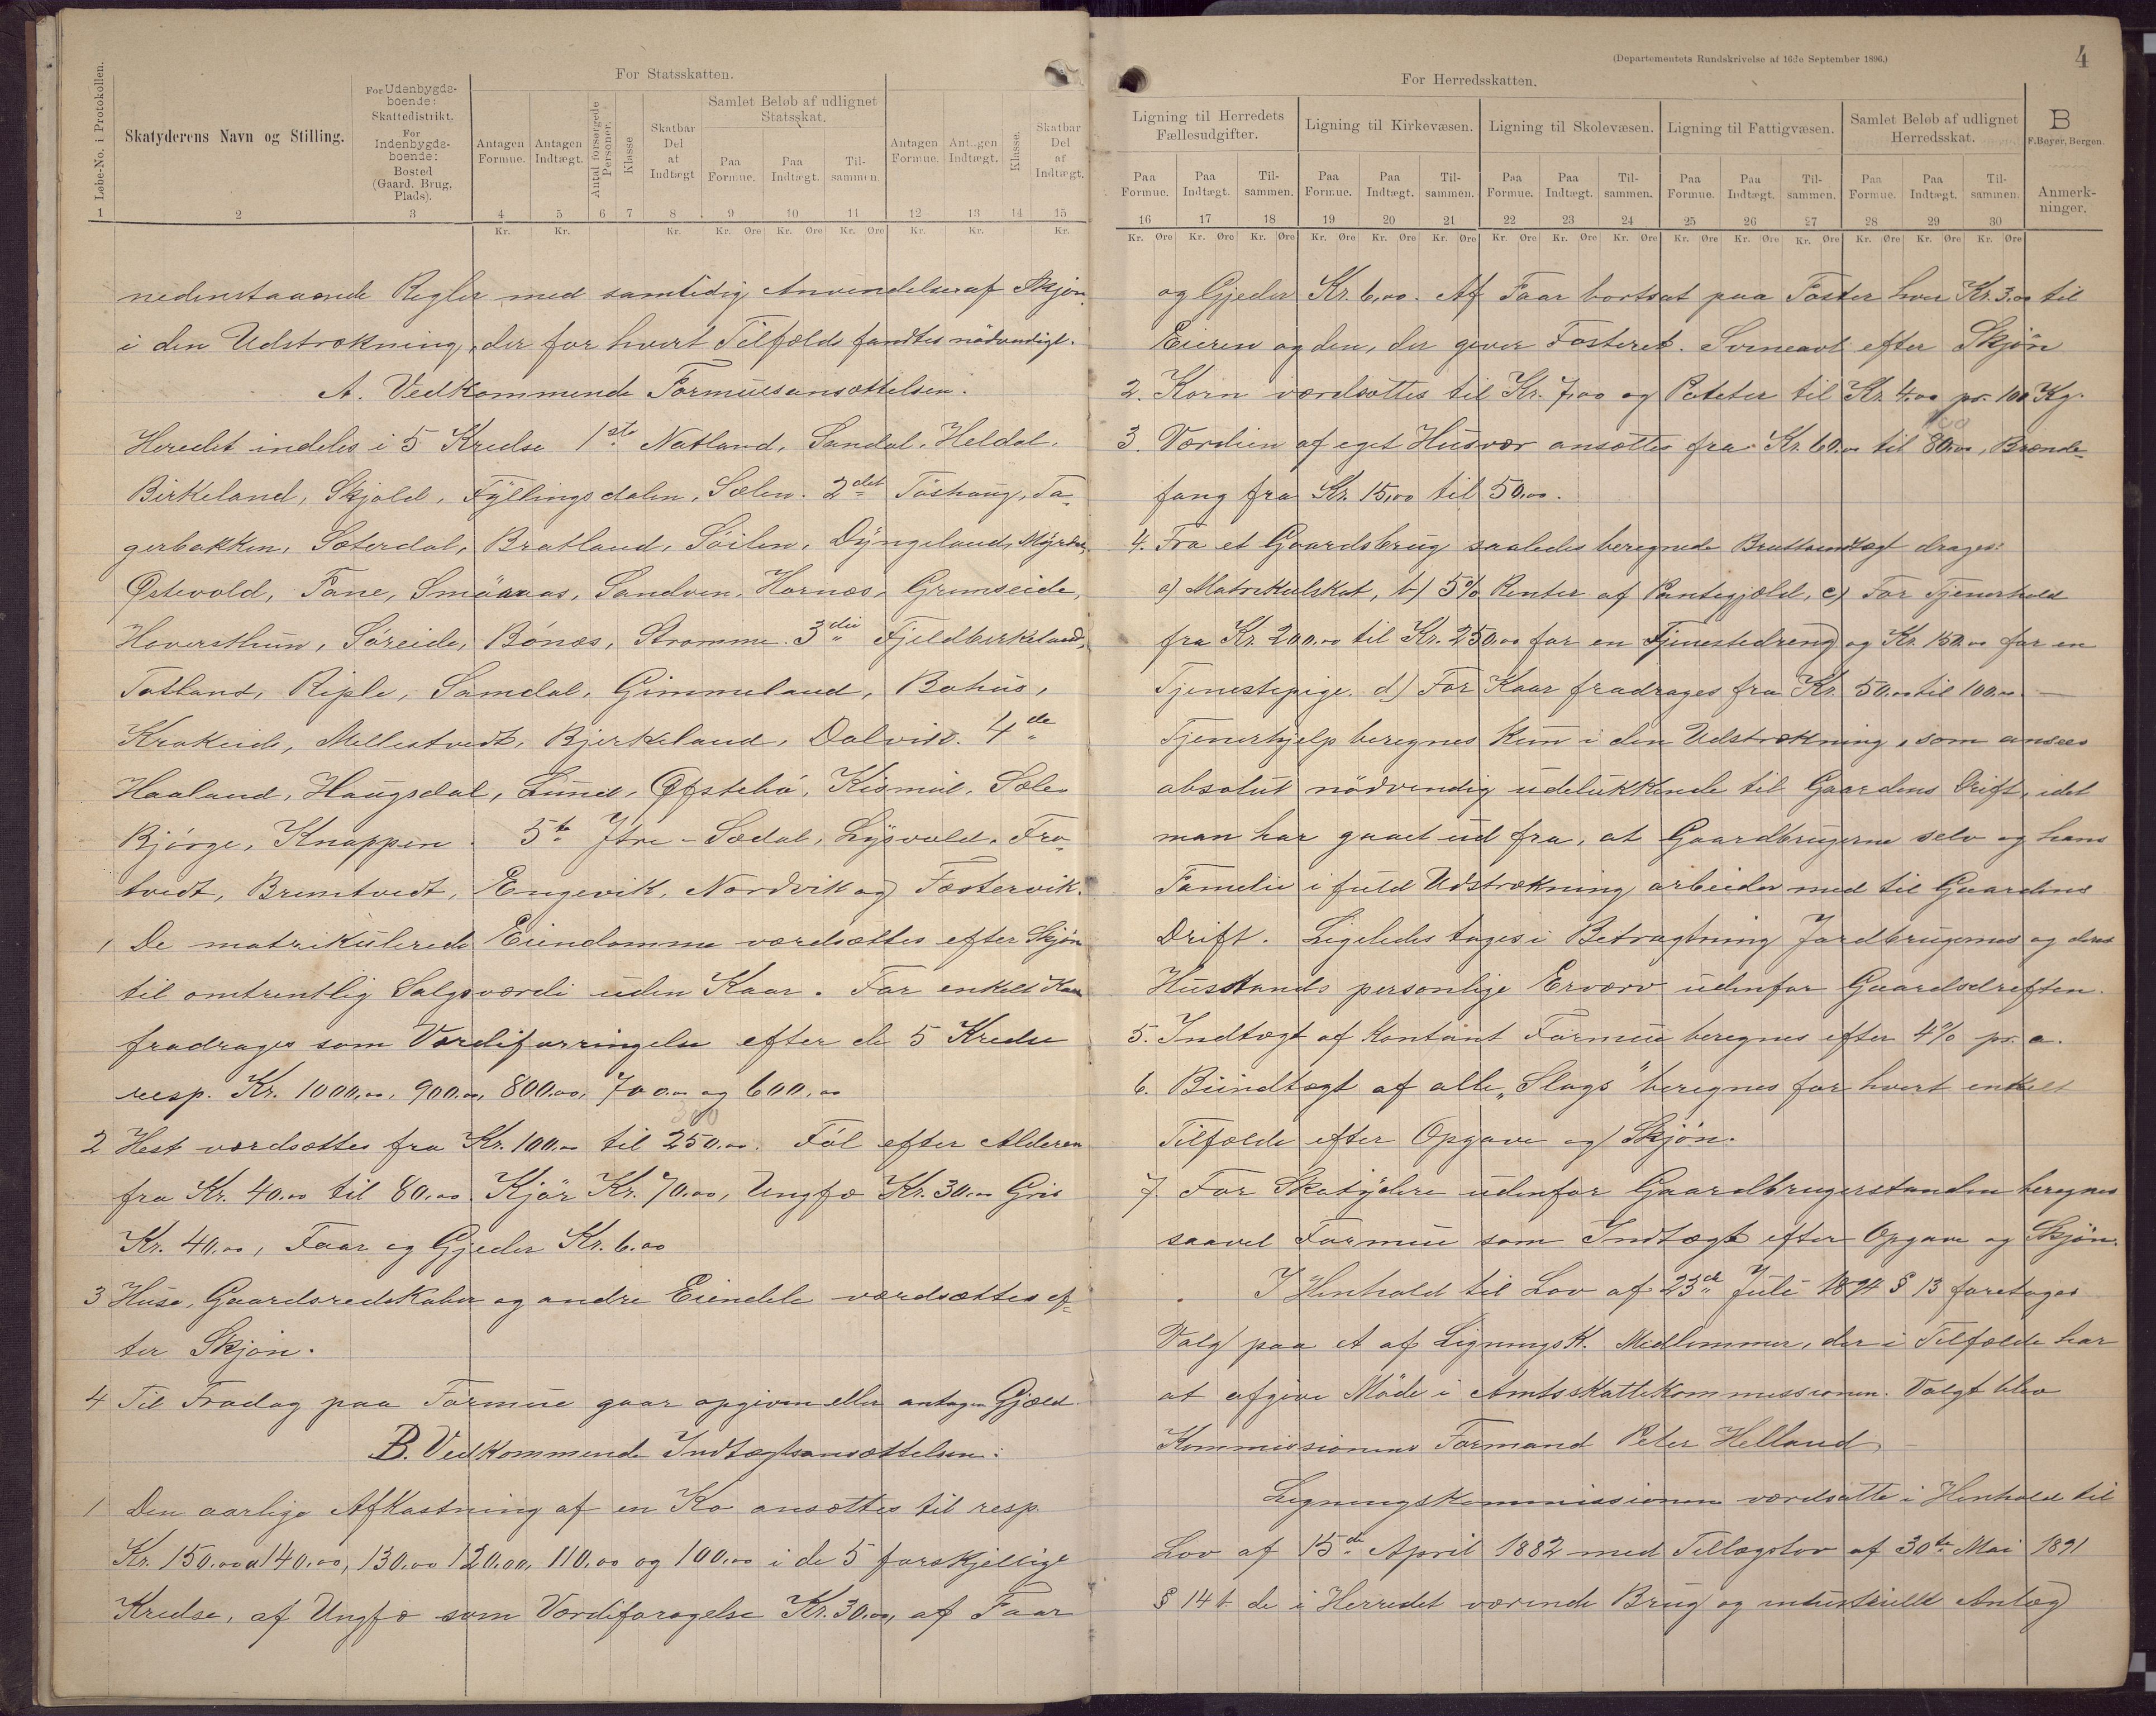 For Statsskatten.
Løbe-No. i Protokollen.
Skatyderens Navn og Stilling.
For Udenbygds-
boende:
Skattedistrikt.
For
Indenbygds-
boende:
Bosted
(Gaard. Brug,
Plads).
Antagen
Formue.
Antagen
Indtægt.
Antal forsørgede
Personer.
Klasse
Skatbar
Del
af
Indtægt
Samlet Beløb af udlignet
Statsskat.
Paa
Formue.
Paa
Indtægt.
Til-
sammen.
Antagen
Formue.
Antagen
Indtægt.
Klasse.
Skatbar
Del
af
Indtægt.
1 2 3 4 5 6 7 8 9 10 11 12 13 14 15
Kr. Kr. Kr. Kr. Øre Kr. Øre Kr. Øre Kr. Kr. Kr.
nedenstaaende Regler med samtidig Anvendelse af Skjøn
i den Udstrækning, der for hvert Tilfælde fandtes nödvendigt.
A. Vedkommende Formuesansættelsen.
Heredet indeles i 5 Kredse 1ste Natland, Sandal, Heldal,
Birkeland, Skjold, Fyllingsdalen, Sælen. 2det Töshaug, Ta-
gerbakken, Sæterdal, Bratland, Söilen, Dyngeland, Myrdal,
Østevold, Fane, Smöraas, Sandven, Hornæs, Grimseide,
Hoversthun, Söreide, Bönæs, Strømme. 3die Fjeldbirkeland,
Totland, Riple, Samdal, Gimmeland, Bahus,
Krokeide, Mellestvedt, Bjerkeland, Dalvik. 4de
Haaland, Haugsdal, Lund, Øfstebö, Kismul, Sæle
Bjørge, Knappen. 5te Ytre-Sædal, Lysvold, Fro-
tvedt, Bruntvedt, Engevik, Nordvik og Fæstervik.
1 De matrikulerede Eiendomme værdsættes efter Skjøn
til omtrentlig Salgsværdi uden Kaar. For enkelt Kaar
fradrages som Værdiforringelse efter de 5 Kredse
resp. Kr. 1000,00, 900,00, 800,00, 700,00 og 600,00
300
2 Hest værdsættes fra Kr. 100,00 til 250,00. Föl efter Alderen
fra Kr. 40,00 til 80,00 Kjör Kr. 70,00, Ungfæ Kr. 30,00 Gris
Kr. 40,00, Faar og Gjeder Kr. 6,00
3 Huse, Gaardsredskaber og andre Eiendele værdsættes ef-
ter Skjøn.
4 Til Fradrag paa Formue gaar opgiven eller antagen Gjæld
B. Vedkommende Indtægtsansættelsen:
1 Den aarlige Afkastning af en Ko ansættes til resp.
Kr. 150,00 a 140,00, 130,00 120,00, 110,00 og 100,00 i de 5 forskjellige
Kredse, af Ungfæ som Værdiforøgelse Kr. 30,00, af Faar
(Departementets Rundskrivelse af 16de September 1896.)
4
For Herredsskatten.
Ligning til Herredets
Fællesudgifter.
Ligning til Kirkevæsen.
Ligning til Skolevæsen.
Ligning til Fattigvæsen.
Samlet Beløb af udlignet
Herredsskat.
B
F. Beyer, Bergen.
Paa Formue. Paa Indtægt. Til-sammen. Paa Formue. Paa Indtægt. Til-sammen. Paa Formue. Paa Indtægt. Til-sammen. Paa Formue. Paa Indtægt. Til-sammen. Paa Formue. Paa Indtægt. Til-sammen.
Anmerk-
ninger.
16 17 18 19 20 21 22 23 24 25 26 27 28 29 30
Kr. Øre Kr. Øre Kr. Øre Kr. Øre Kr. Øre Kr. Øre Kr. Øre Kr. Øre Kr. Øre Kr. Øre Kr. Øre Kr. Øre Kr. Øre Kr. Øre Kr. Øre
og Gjeder Kr. 6,00. Af Faar bortsat paa Foster hver Kr. 3,00 til
Eieren og den, der giver Fosteret. Svineavl efter Skjön
2. Korn værdsættes til Kr. 7,00 og Poteter til Kr. 4,00 pr. 100 Kg.
100
3. Værdien af eget Husvær ansættes fra Kr. 60,00 til 80,00, Brænde-
fang fra Kr. 15,00 til 50,00.
4. Fra et Gaardsbrug saaledes beregnede Bruttoindtægt drages:
a) Matrikulskat, b) 5% Renter af Pantegjæld, c) For Tjenerhold
fra Kr. 200,00 til Kr. 250,00 for en Tjenestedreng og Kr. 150,00 for en
Tjenestepige. d) For Kaar fradrages fra Kr. 50,00 til 100,00 —
Tjenerhjelp beregnes kun i den Udstrækning, som ansees
absolut nödvendig udelukkende til Gaardens Drift, idet
man har gaaet ud fra, at Gaardbrugerne selv og hans
Familie i fuld Udstrækning arbeider med til Gaardens
Drift. Ligeledes tages i Betragtning Jordbrugernes og deres
Husstands personlige Erværv udenfor Gaardsdriften.
5. Indtægt af Kontant Formue beregnes efter 4% pr. a.
6. Biindtægt af alle "Slags" beregnes for hvert enkelt
Tilfælde efter Opgave og Skjön.
7. For Skatydere udenfor Gaardbrugerstanden beregnes
saavel Formue som Indtægt efter Opgave og Skjøn.
I Henhold til Lov af 23de Juli 1894 § 13 foretages
Valg paa et af Ligningsk. Medlemmer, der i Tilfælde har
at afgive Möde i Amtsskattekommissionen. Valgt blev
Kommissionens Formand Peter Helland
Ligningskommissionen værdsatte i Henhold til
Lov af 15de April 1882 med Tillægslov af 30te Mai 1891
§ 14 b de i Herredet værende Brug og industrielle Anlæg